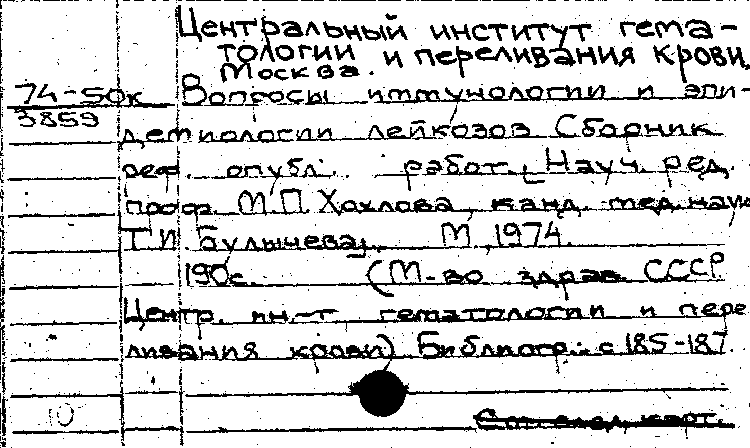 Центральный институт гема-
тологии и переливания крови,
Москва.
74-50к Вопросы иммунологии и эпи-
3859
демиологии лейкозов Сборник
реф. опубл. работ. [Науч. ред.
проф. М.П. Хохлова, канд. мед. наук
Т.И. Булычева]. М, 1974.
190с. (М-во здрав. СССР.
Центр. ин-т гематологии и пере
ливания крови) Библиогр.: с 185-187.
10
См. след. карт.